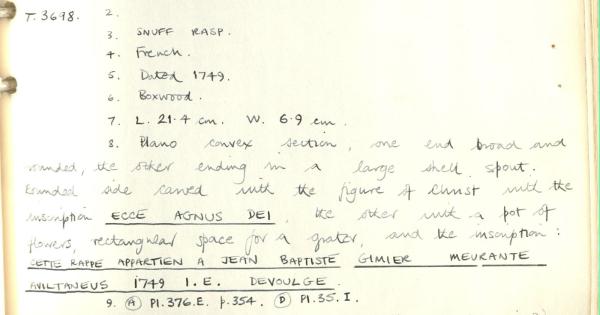 T. 3698. 2.
3. SNUFF RASP.
4. French.
5. Dated 1749.
6. Boxwood.
7. L. 21.4 cm. W. 6.9 cm.
8. Plano convex section, one end broad and
rounded, the other ending in a large shell spout.
Rounded side carved with the figure of Christ with the
inscription ECCE AGNUS DEI, the other with a pot of
flowers, rectangular space for a grater, and the inscription:
CETTE RAPPE APPARTIEN A JEAN BAPTISTE GIMIER MEURANTE
AVILTANEUS 1749 I.E. DEVOULGE.
9. (A) Pl.376.E. p.354. (D) Pl.35. I.